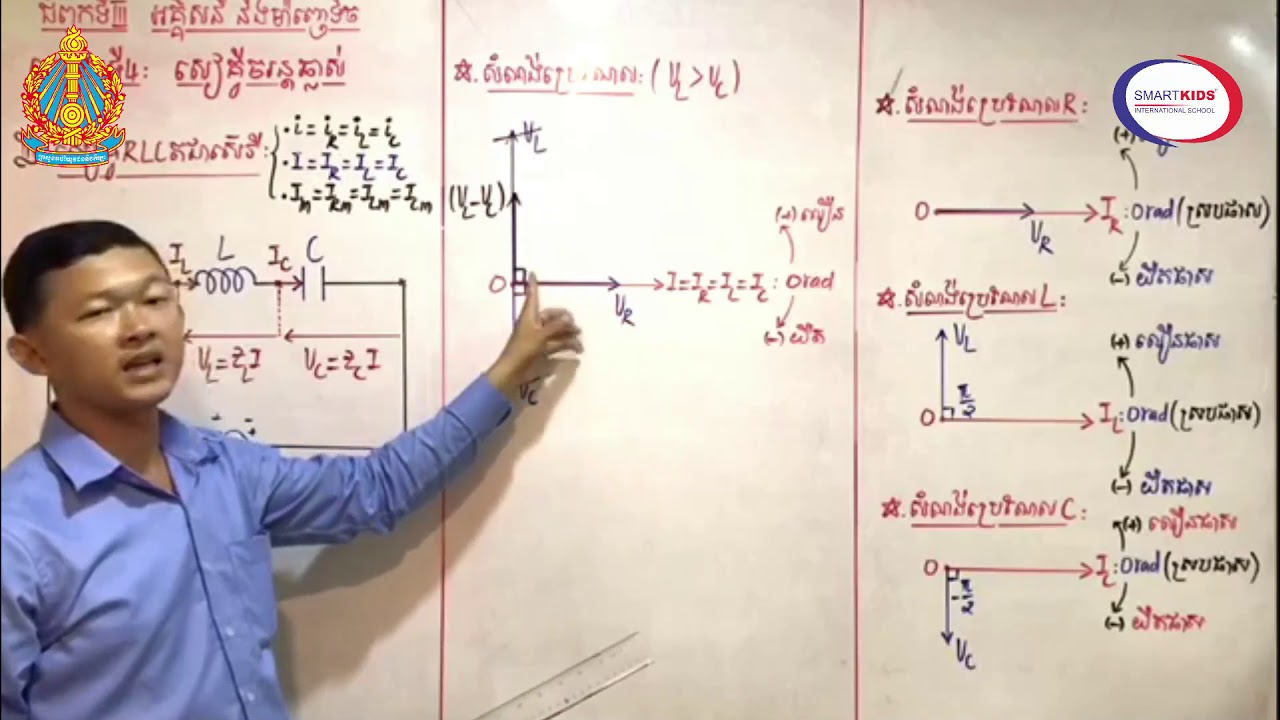 ជំពូកទី III អគ្គិសនី និងម៉ាញេទិច
ទី4: សៀគ្វីចរន្តឆ្លាស់
RLC តជាស៊េរី:
• i = i_R = i_L = i_C
• I = I_R = I_L = I_C
• I_m = I_Rm = I_Lm = I_Cm
I_L L I_C C
V_L = Z_L I V_C = Z_C I
☆. សំណង់ប្រេណែល: (V_L > V_C)
V_L
(V_L - V_C)
(+) លឿន
O V_R I = I_R = I_L = I_C : 0rad
(-) យឺត
V_C
SMARTKIDS
INTERNATIONAL SCHOOL
☆. សំណង់ប្រេណែល R:
(+)
O V_R I_R : 0rad (ស្របផាស)
(-) យឺតផាស
☆. សំណង់ប្រេណែល L:
V_L (+) លឿនផាស
π/2
O I_L : 0rad (ស្របផាស)
(-) យឺតផាស
☆. សំណង់ប្រេណែល C:
(+) លឿនផាស
O I_C : 0rad (ស្របផាស)
-π/2
(-) យឺតផាស
V_C